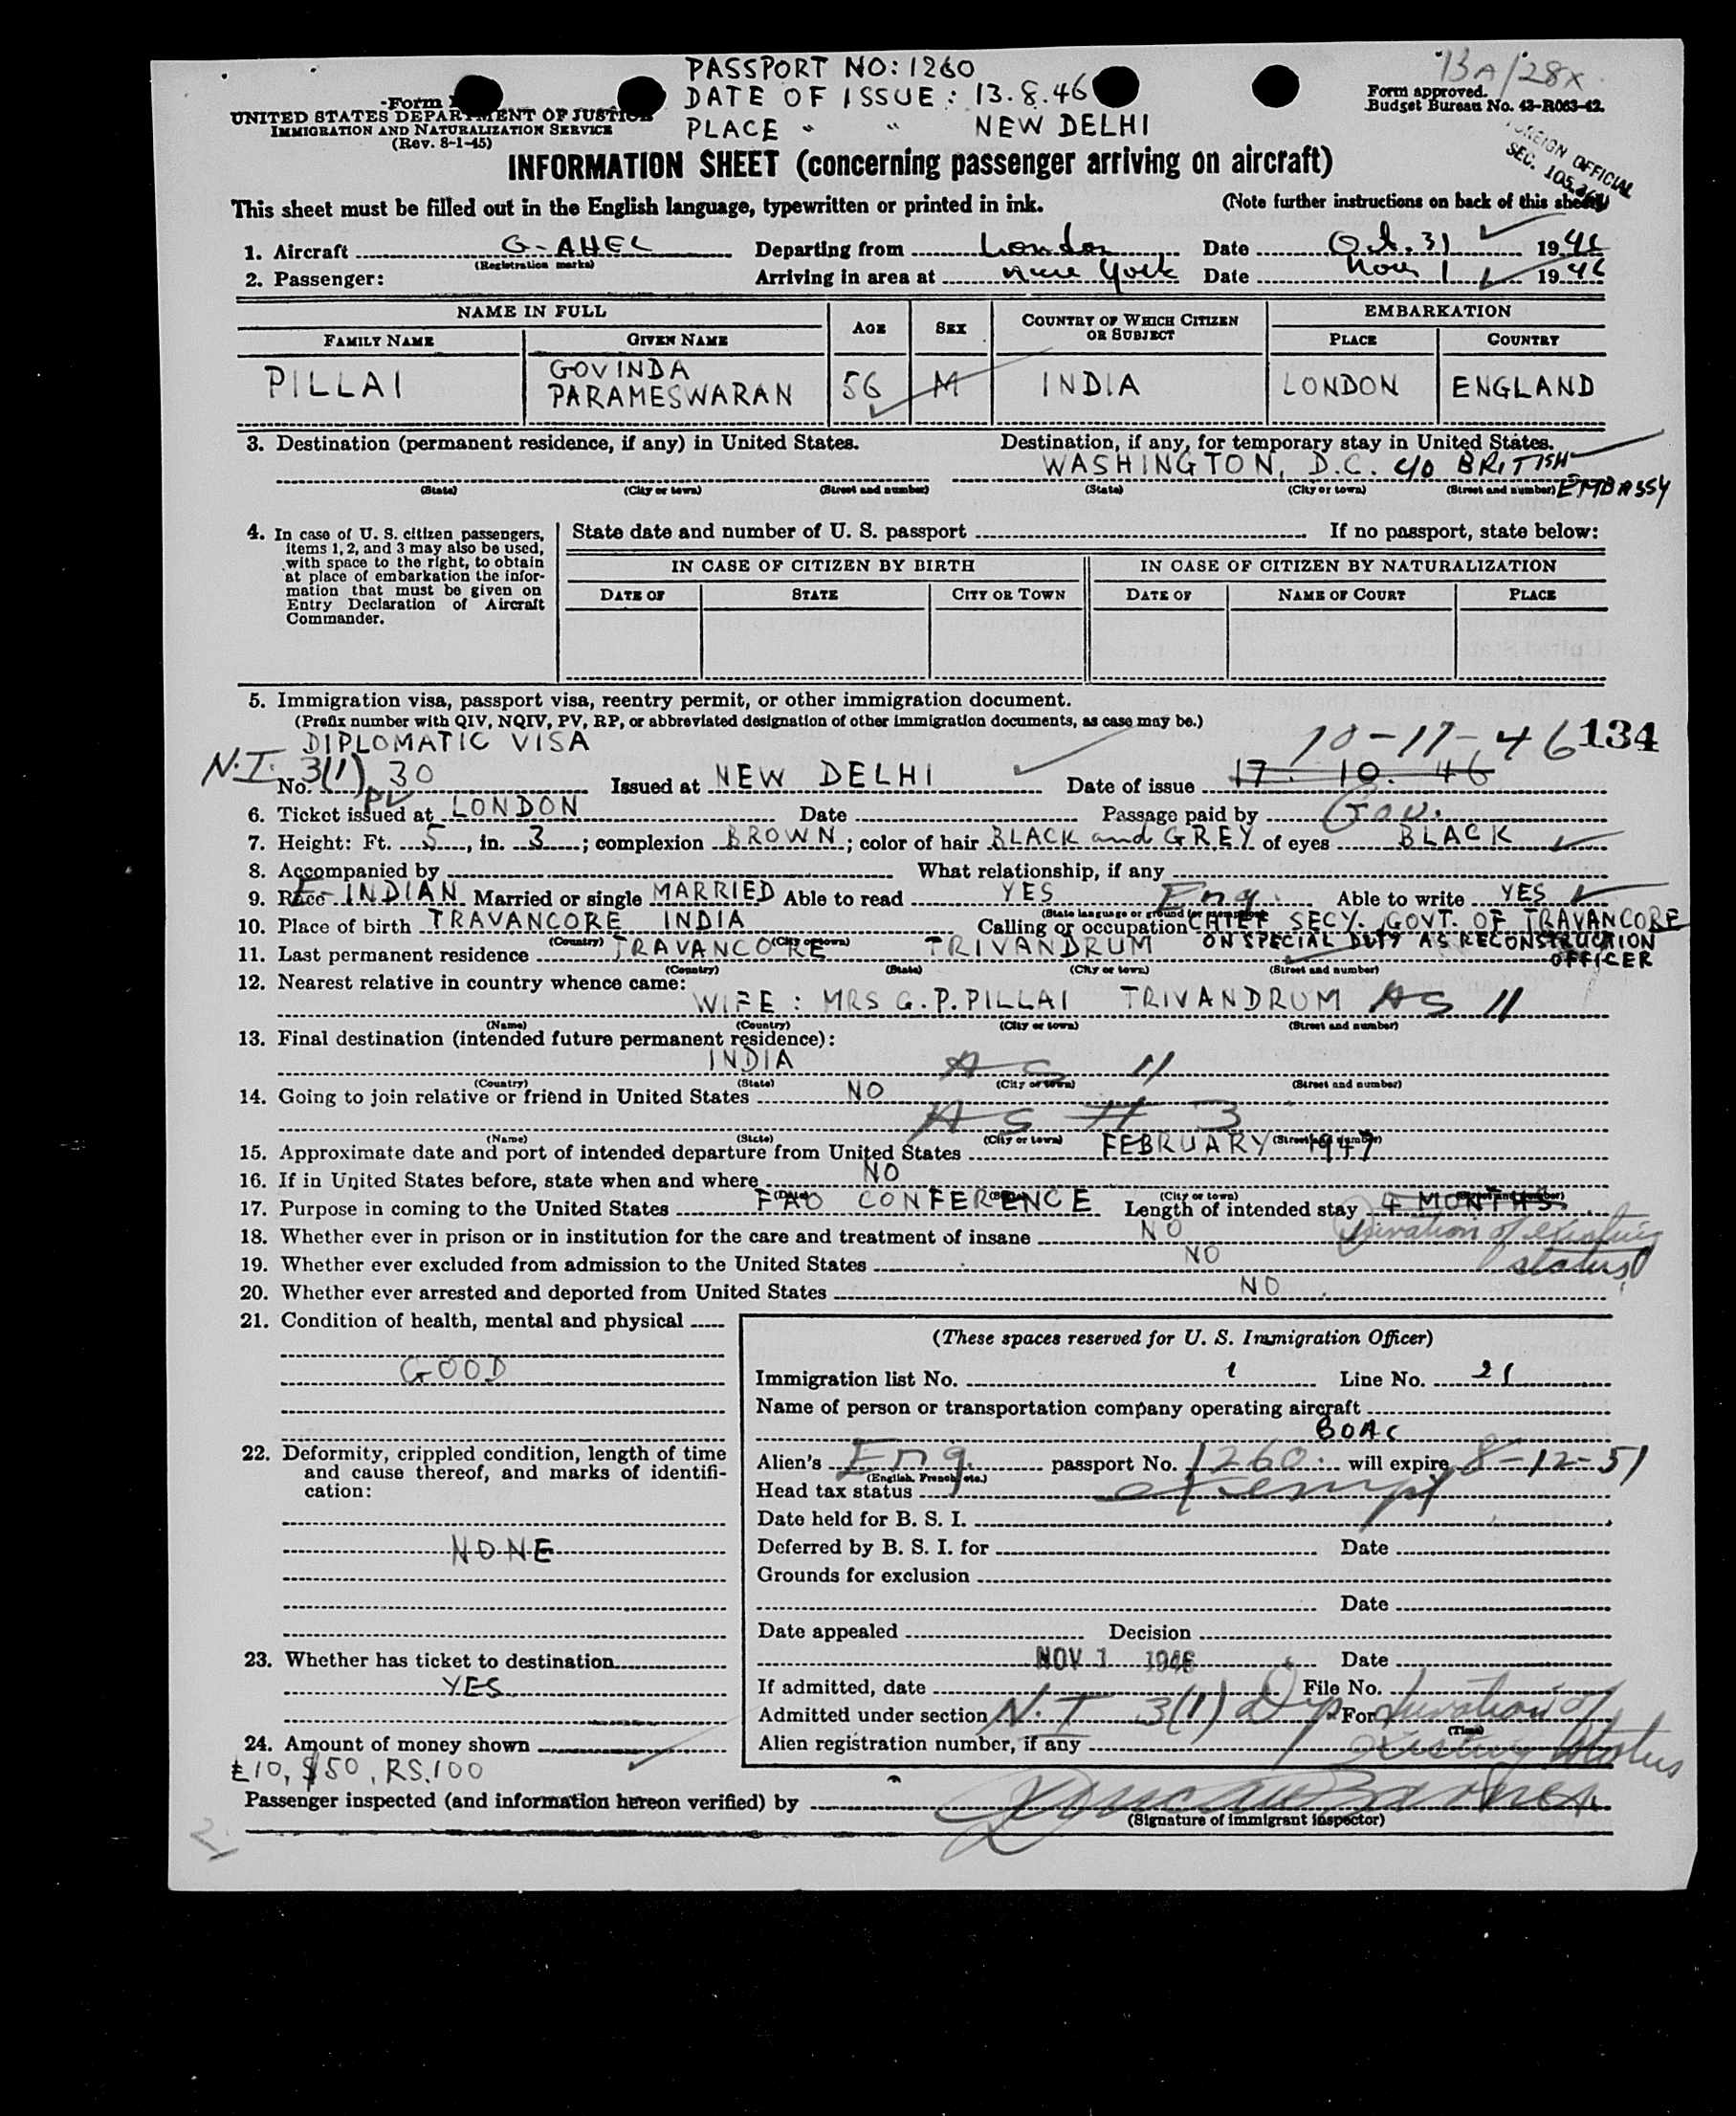 PASSPORT NO: 1260
BA/28X
DATE OF ISSUE : 13.8.46
PLACE " " NEW DELHI
Form
UNITED STATES DEPARTMENT OF JUSTICE
IMMIGRATION AND NATURALIZATION SERVICE
(Rev. 8-1-45)
Form approved.
Budget Bureau No. 43-R063-42.
FOREIGN OFFICIAL
SEC. 105.3
INFORMATION SHEET (concerning passenger arriving on aircraft)
This sheet must be filled out in the English language, typewritten or printed in ink. (Note further instructions on back of this sheet)
1. Aircraft G-AHEL Departing from London Date Oct. 31 1946
(Registration marks)
2. Passenger: Arriving in area at New York Date Nov 1 1946
NAME IN FULL AGE SEX COUNTRY OF WHICH CITIZEN OR SUBJECT EMBARKATION
FAMILY NAME GIVEN NAME PLACE COUNTRY
PILLAI GOVINDA PARAMESWARAN 56 M INDIA LONDON ENGLAND
3. Destination (permanent residence, if any) in United States. Destination, if any, for temporary stay in United States.
WASHINGTON, D.C. c/o BRITISH EMBASSY
(State) (City or town) (Street and number) (State) (City or town) (Street and number)
4. In case of U. S. citizen passengers, items 1, 2, and 3 may also be used, with space to the right, to obtain at place of embarkation the information that must be given on Entry Declaration of Aircraft Commander.
State date and number of U. S. passport If no passport, state below:
IN CASE OF CITIZEN BY BIRTH IN CASE OF CITIZEN BY NATURALIZATION
DATE OF STATE CITY OR TOWN DATE OF NAME OF COURT PLACE
5. Immigration visa, passport visa, reentry permit, or other immigration document.
(Prefix number with QIV, NQIV, PV, RP, or abbreviated designation of other immigration documents, as case may be.)
DIPLOMATIC VISA 10-17-46 134
N.I. 3(1)
No. PV 30 Issued at NEW DELHI Date of issue 17. 10. 46
6. Ticket issued at LONDON Date Passage paid by Gov.
7. Height: Ft. 5, in. 3; complexion BROWN; color of hair BLACK and GREY of eyes BLACK
8. Accompanied by What relationship, if any
9. Race E-INDIAN Married or single MARRIED Able to read YES Eng. Able to write YES
(State language or ground for exemption)
10. Place of birth TRAVANCORE INDIA Calling or occupation CHIEF SECY. GOVT. OF TRAVANCORE
(Country) (City or town) ON SPECIAL DUTY AS RECONSTRUCTION OFFICER
11. Last permanent residence TRAVANCORE TRIVANDRUM
(Country) (State) (City or town) (Street and number)
12. Nearest relative in country whence came:
WIFE : MRS G.P.PILLAI TRIVANDRUM AS 11
(Name) (Country) (City or town) (Street and number)
13. Final destination (intended future permanent residence):
INDIA AS 11
(Country) (State) (City or town) (Street and number)
14. Going to join relative or friend in United States NO
AS # 3
(Name) (State) (City or town) (Street and number)
15. Approximate date and port of intended departure from United States FEBRUARY 1947
16. If in United States before, state when and where NO
(Date) (City or town) (Street and number)
17. Purpose in coming to the United States FAO CONFERENCE Length of intended stay 4 MONTHS
Duration of existing status
18. Whether ever in prison or in institution for the care and treatment of insane NO
19. Whether ever excluded from admission to the United States NO
20. Whether ever arrested and deported from United States NO
21. Condition of health, mental and physical
GOOD
22. Deformity, crippled condition, length of time and cause thereof, and marks of identification:
NONE
23. Whether has ticket to destination
YES
24. Amount of money shown
£10, $50, RS.100
(These spaces reserved for U. S. Immigration Officer)
Immigration list No. 1 Line No. 21
Name of person or transportation company operating aircraft
BOAC
Alien's Eng. passport No. 1260. will expire 8-12-51
(English, French, etc.)
Head tax status exempt
Date held for B. S. I.
Deferred by B. S. I. for Date
Grounds for exclusion
Date
Date appealed Decision
NOV 1 1946 Date
If admitted, date File No.
Admitted under section N.I 3(1) Dip For duration of
(Time)
Alien registration number, if any existing status
Passenger inspected (and information hereon verified) by
(Signature of immigrant inspector)